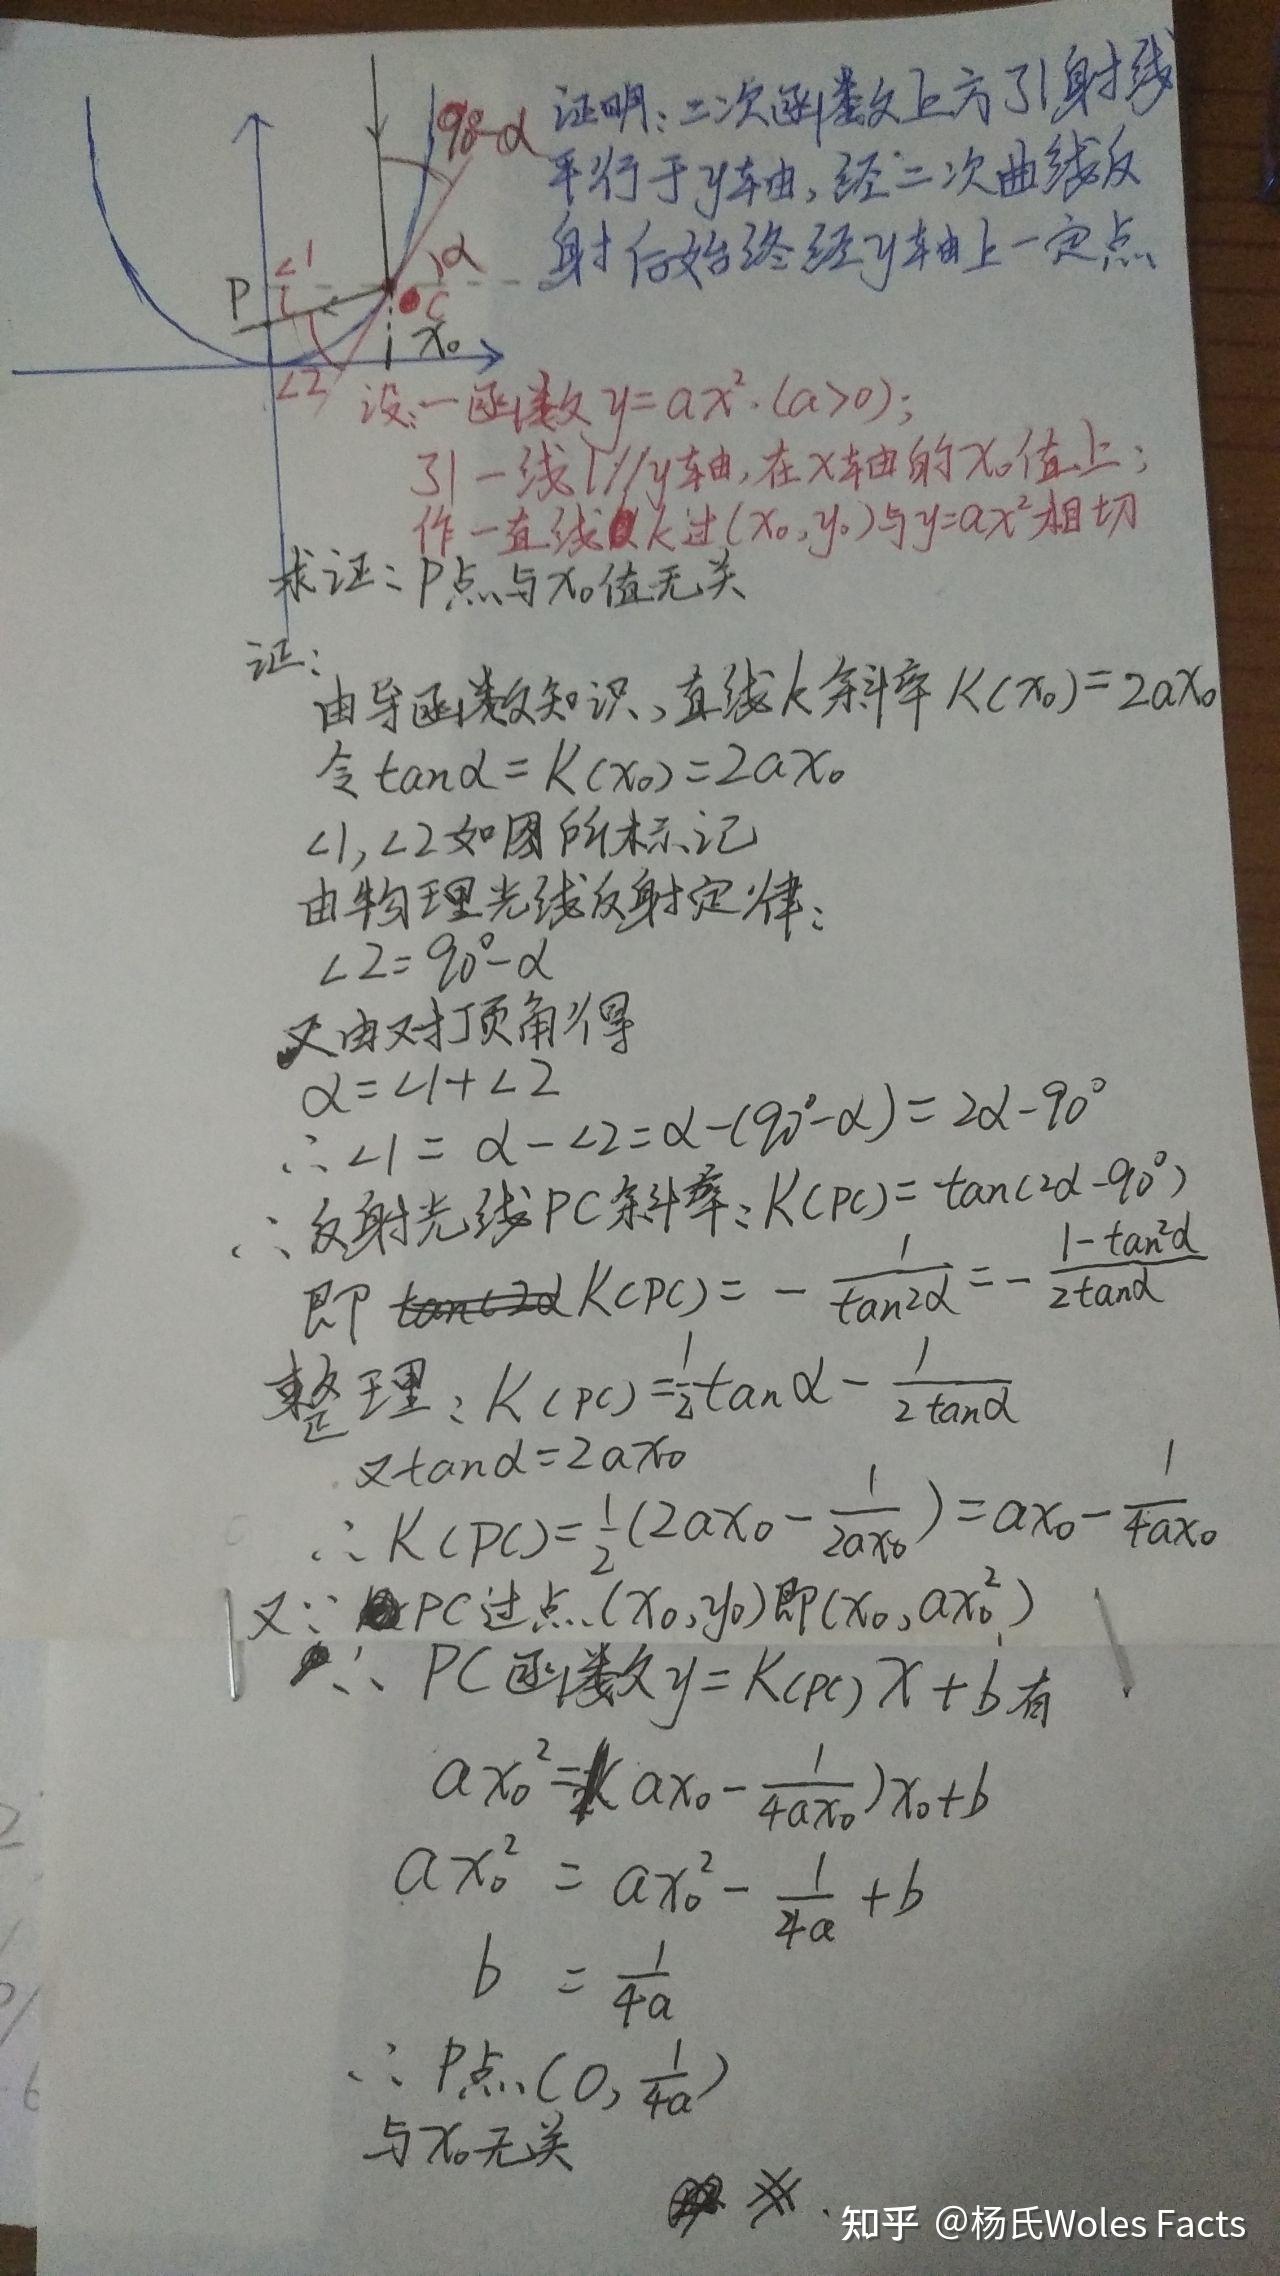 证明:二次函数上方引射线
平行于y轴,经二次曲线反
射后始终经y轴上一定点
90-α
α
∠1
P
C
x₀
∠2
设:一函数y=ax².(a>0);
引一线l//y轴,在x轴的x₀值上;
作一直线k过(x₀,y₀)与y=ax²相切
求证:P点与x₀值无关
证:
由导函数知识,直线k斜率K(x₀)=2ax₀
令tanα=K(x₀)=2ax₀
∠1,∠2如图所标记
由物理光线反射定律:
∠2=90°-α
又由对顶角得
α=∠1+∠2
∴∠1=α-∠2=α-(90°-α)=2α-90°
∴反射光线PC斜率:K(PC)=tan(2α-90°)
即 K(PC)=-1/tan2α=-(1-tan²α)/(2tanα)
整理:K(PC)=½tanα-1/(2tanα)
又tanα=2ax₀
∴K(PC)=½(2ax₀-1/(2ax₀))=ax₀-1/(4ax₀)
又∵PC过点(x₀,y₀)即(x₀,ax₀²)
∴PC函数y=K(PC)x+b有
ax₀²=(ax₀-1/(4ax₀))x₀+b
ax₀²=ax₀²-1/(4a)+b
b=1/(4a)
∴P点(0,1/(4a))
与x₀无关
知乎 @杨氏Woles Facts